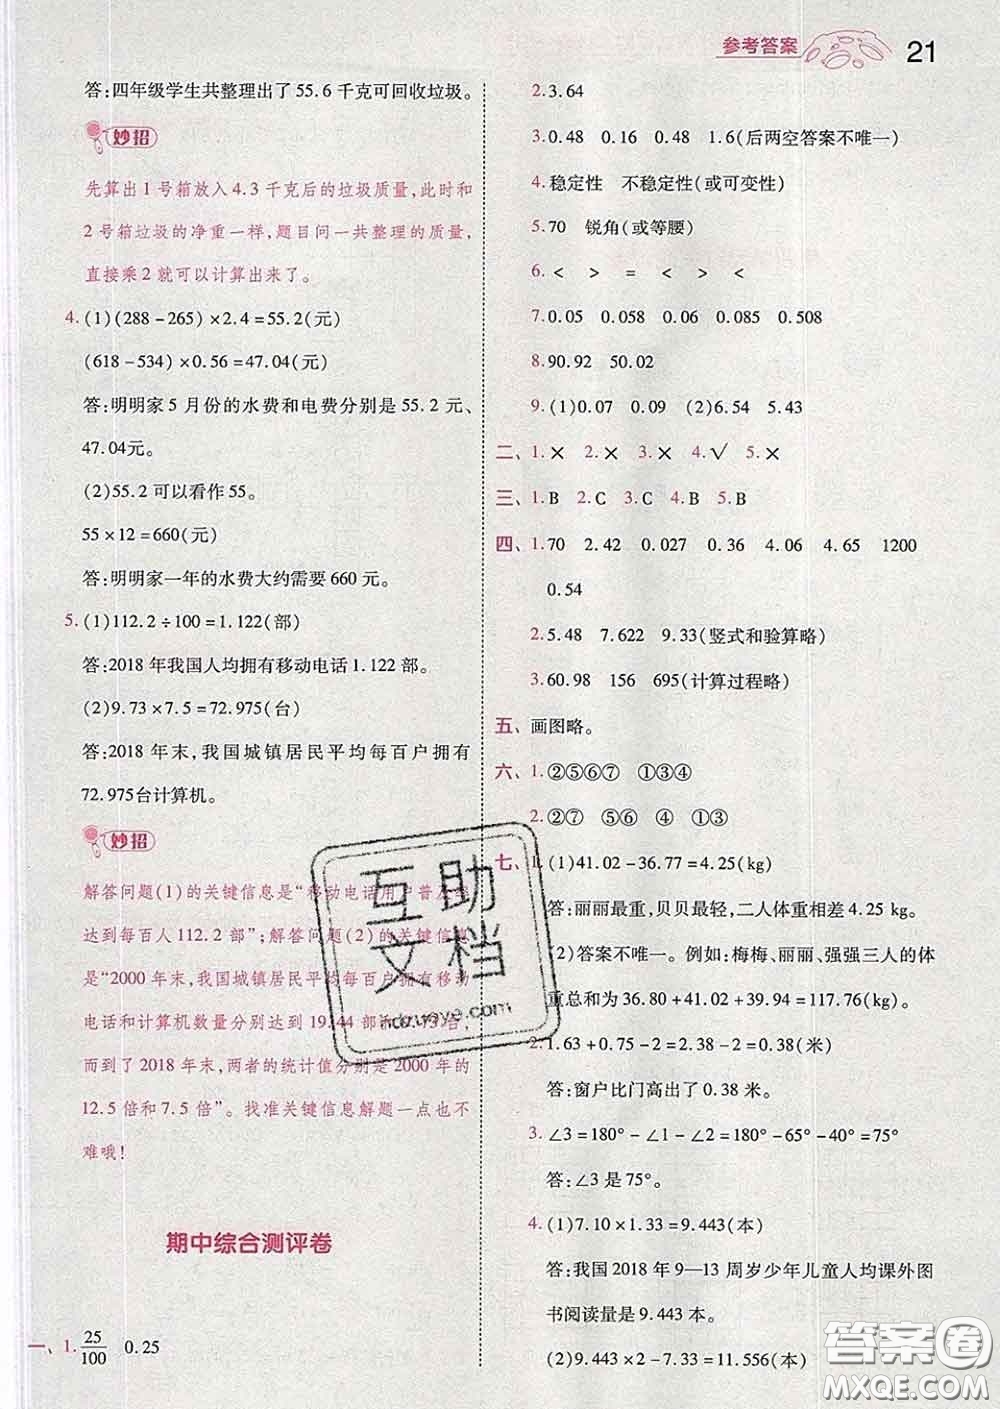 参考答案 21
答:四年级学生共整理出了 55.6 千克可回收垃圾。
妙招
先算出 1 号箱放入 4.3 千克后的垃圾质量,此时和
2 号箱垃圾的净重一样,题目问一共整理的质量,
直接乘 2 就可以计算出来了。
4. (1)(288-265)×2.4=55.2(元)
(618-534)×0.56=47.04(元)
答:明明家 5 月份的水费和电费分别是 55.2 元、
47.04元。
(2)55.2 可以看作 55。
55×12=660(元)
答:明明家一年的水费大约需要 660 元。
5. (1)112.2÷100=1.122(部)
答:2018 年我国人均拥有移动电话 1.122 部。
(2)9.73×7.5=72.975(台)
答:2018 年末,我国城镇居民平均每百户拥有
72.975台计算机。
妙招
解答问题(1)的关键信息是“移动电话用户普及
达到每百人 112.2 部”;解答问题(2)的关键信息
是“2000 年末,我国城镇居民平均每百户拥有移动
电话和计算机数量分别达到 19.44 部
而到了 2018 年末,两者的统计值分别是 2000 年的
12.5 倍和 7.5 倍”。找准关键信息解题一点也不
难哦!
期中综合测评卷
一、1. 25/100 0.25
2. 3.64
3. 0.48 0.16 0.48 1.6(后两空答案不唯一)
4. 稳定性 不稳定性(或可变性)
5. 70 锐角(或等腰)
6. < > = < > <
7. 0.05 0.058 0.06 0.085 0.508
8. 90.92 50.02
9. (1)0.07 0.09 (2)6.54 5.43
二、1. × 2. × 3. × 4. √ 5. ×
三、1. B 2. C 3. C 4. B 5. B
四、1. 70 2.42 0.027 0.36 4.06 4.65 1200
0.54
2. 5.48 7.622 9.33(竖式和验算略)
3. 60.98 156 695(计算过程略)
五、画图略。
六、1. ②⑤⑥⑦ ①③④
2. ②⑦ ⑤⑥ ④ ①③
七、1. (1)41.02-36.77=4.25(kg)
答:丽丽最重,贝贝最轻,二人体重相差 4.25 kg。
(2)答案不唯一。例如:梅梅、丽丽、强强三人的体
重总和为 36.80+41.02+39.94=117.76(kg)。
2. 1.63+0.75-2=2.38-2=0.38(米)
答:窗户比门高出了 0.38 米。
3. ∠3=180°-∠1-∠2=180°-65°-40°=75°
答:∠3 是 75°。
4. (1)7.10×1.33=9.443(本)
答:我国 2018 年 9—13 周岁少年儿童人均课外图
书阅读量是 9.443 本。
(2)9.443×2-7.33=11.556(本)
互助
文档
hdzuoye.com
答案圈
MXQE.COM